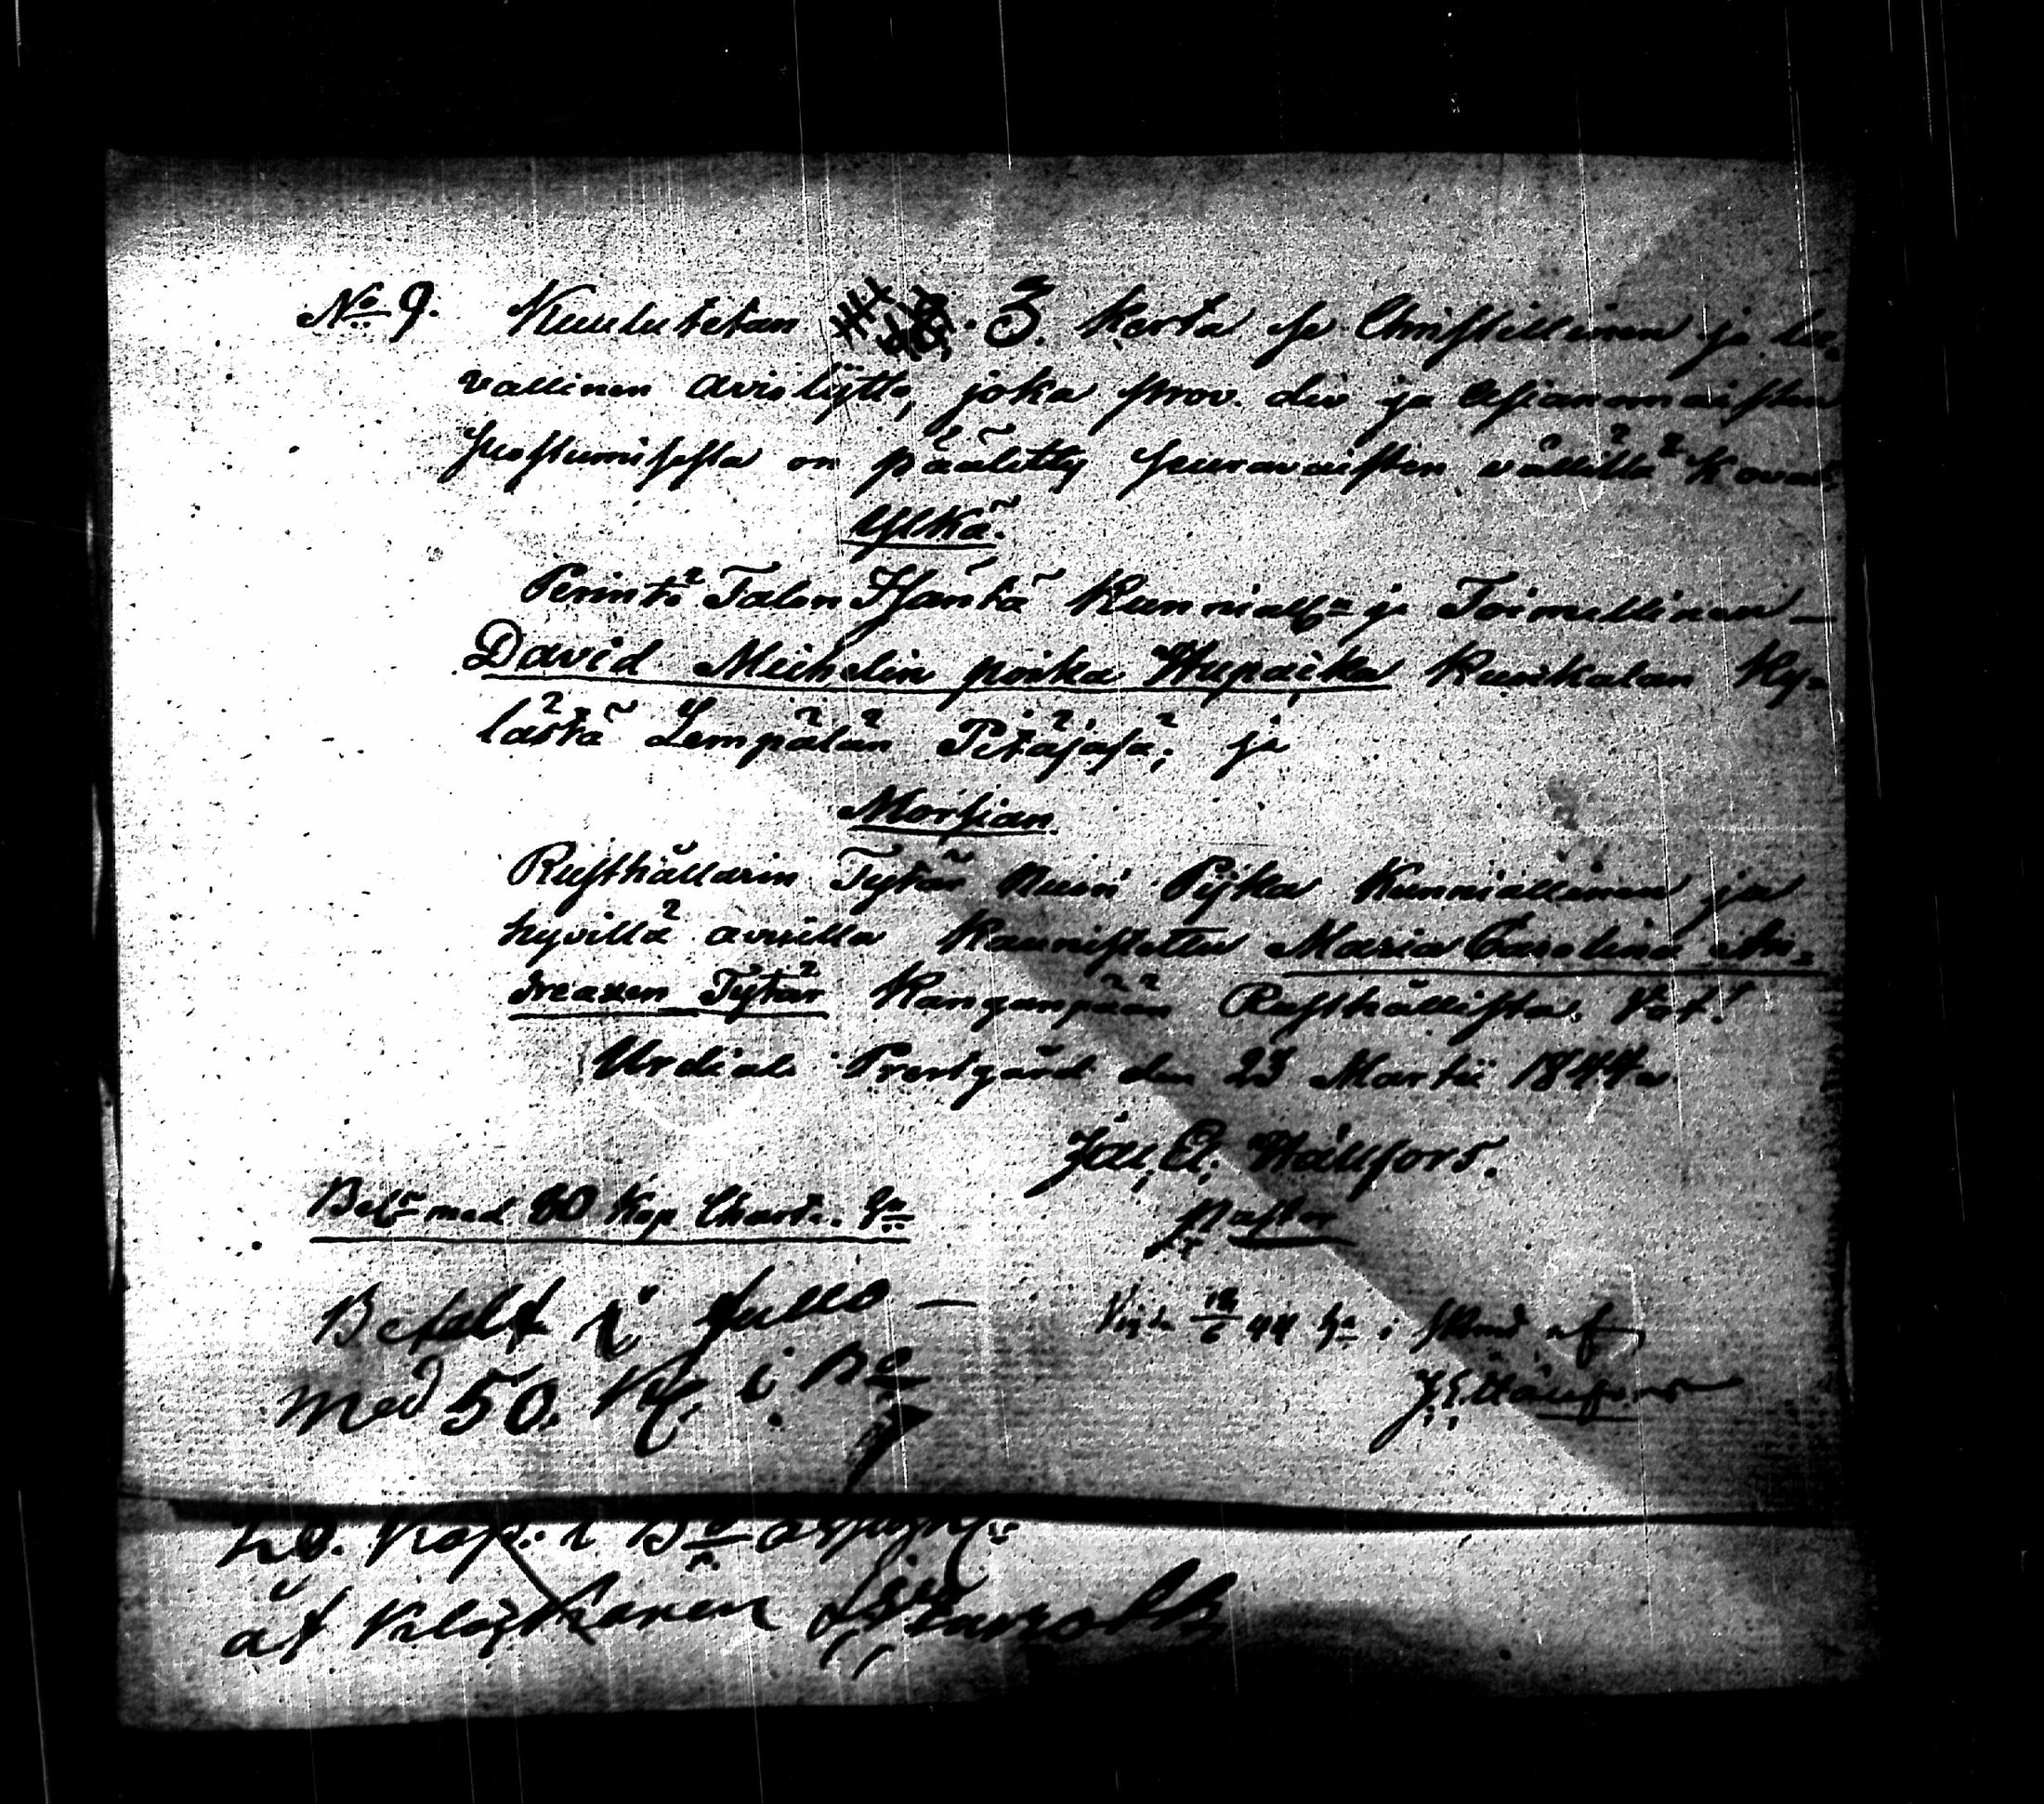 No 9. Kuulutetan 3. kerta se Christillinen ja lu-
vallinen avioliitto, joka prov. div ja asianomaisten
suostumisesta on päätetty seuravaisten välillä kovat.
Ylkä.
Perintö Talon Isäntä Kunniall= ja Toimellinen —
David Michelin poika Hupaika Kuokkalan Ky=
lästä Lempälän Pitäjäsä; ja
Morsian
Rusthållarin Tytär nuori Pijka Kunniallinen ja
hyvillä avuilla kaunistettu Maria Carolina An=
dreaxen Tytär Kanganpään Rusthållista.
Urdiala Prestgård den 23 Martii 1844
Jak. E. Hällfors.
Pastor
Bet= med 60 Kop Chartæ.
Betalt i fullo —
med 50. Kop. i
44 i af
J. E. Hällfors
Kop. i
åt Klockaren